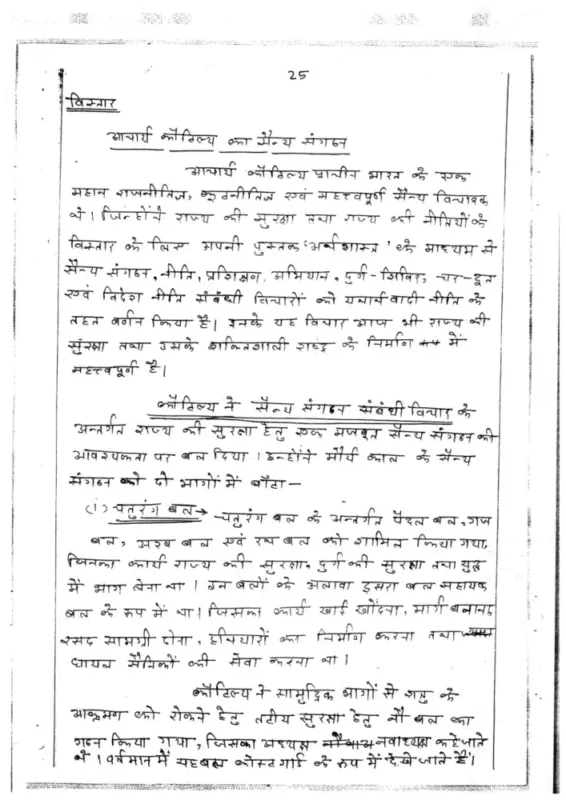 25
विस्तार
आचार्य कौटिल्य का सैन्य संगठन
आचार्य कौटिल्य प्राचीन भारत के एक
महान राजनीतिज्ञ, कूटनीतिज्ञ एवं महत्त्वपूर्ण सैन्य विचारक
थे। जिन्होंने राज्य की सुरक्षा तथा राज्य की नीतियों के
विस्तार के लिए अपनी पुस्तक 'अर्थशास्त्र' के माध्यम से
सैन्य संगठन, नीति, प्रशिक्षण, अभियान, दुर्ग-शिविर, चर-दूत
एवं विदेश नीति संबंधी विचारों को यथार्थवादी नीति के
तहत वर्णन किया है। इनके यह विचार आज भी राज्य की
सुरक्षा तथा उसके शक्तिशाली राष्ट्र के निर्माण में
महत्त्वपूर्ण है।
कौटिल्य ने सैन्य संगठन संबंधी विचार के
अन्तर्गत राज्य की सुरक्षा हेतु एक मजबूत सैन्य संगठन की
आवश्यकता पर बल दिया। इन्होंने मौर्य काल के सैन्य
संगठन को दो भागों में बाँटा—
(i) चतुरंग बल → चतुरंग बल के अन्तर्गत पैदल बल, गज
बल, अश्व बल एवं रथ बल को शामिल किया गया,
जिनका कार्य राज्य की सुरक्षा, दुर्ग की सुरक्षा तथा युद्ध
में भाग लेना था। इन बलों के अलावा दूसरा बल सहायक
बल के रूप में था। जिसका कार्य खाई खोदना, मार्ग बनाना,
रसद सामग्री ढोना, हथियारों का निर्माण करना तथा
घायल सैनिकों की सेवा करना था।
कौटिल्य ने सामुद्रिक भागों से शत्रु के
आक्रमण को रोकने हेतु तटीय सुरक्षा हेतु नौ बल का
गठन किया गया, जिसका अध्यक्ष नवाध्यक्ष कहे जाते
थे। वर्तमान में यह बल कोस्ट गार्ड के रूप में देखे जाते हैं।